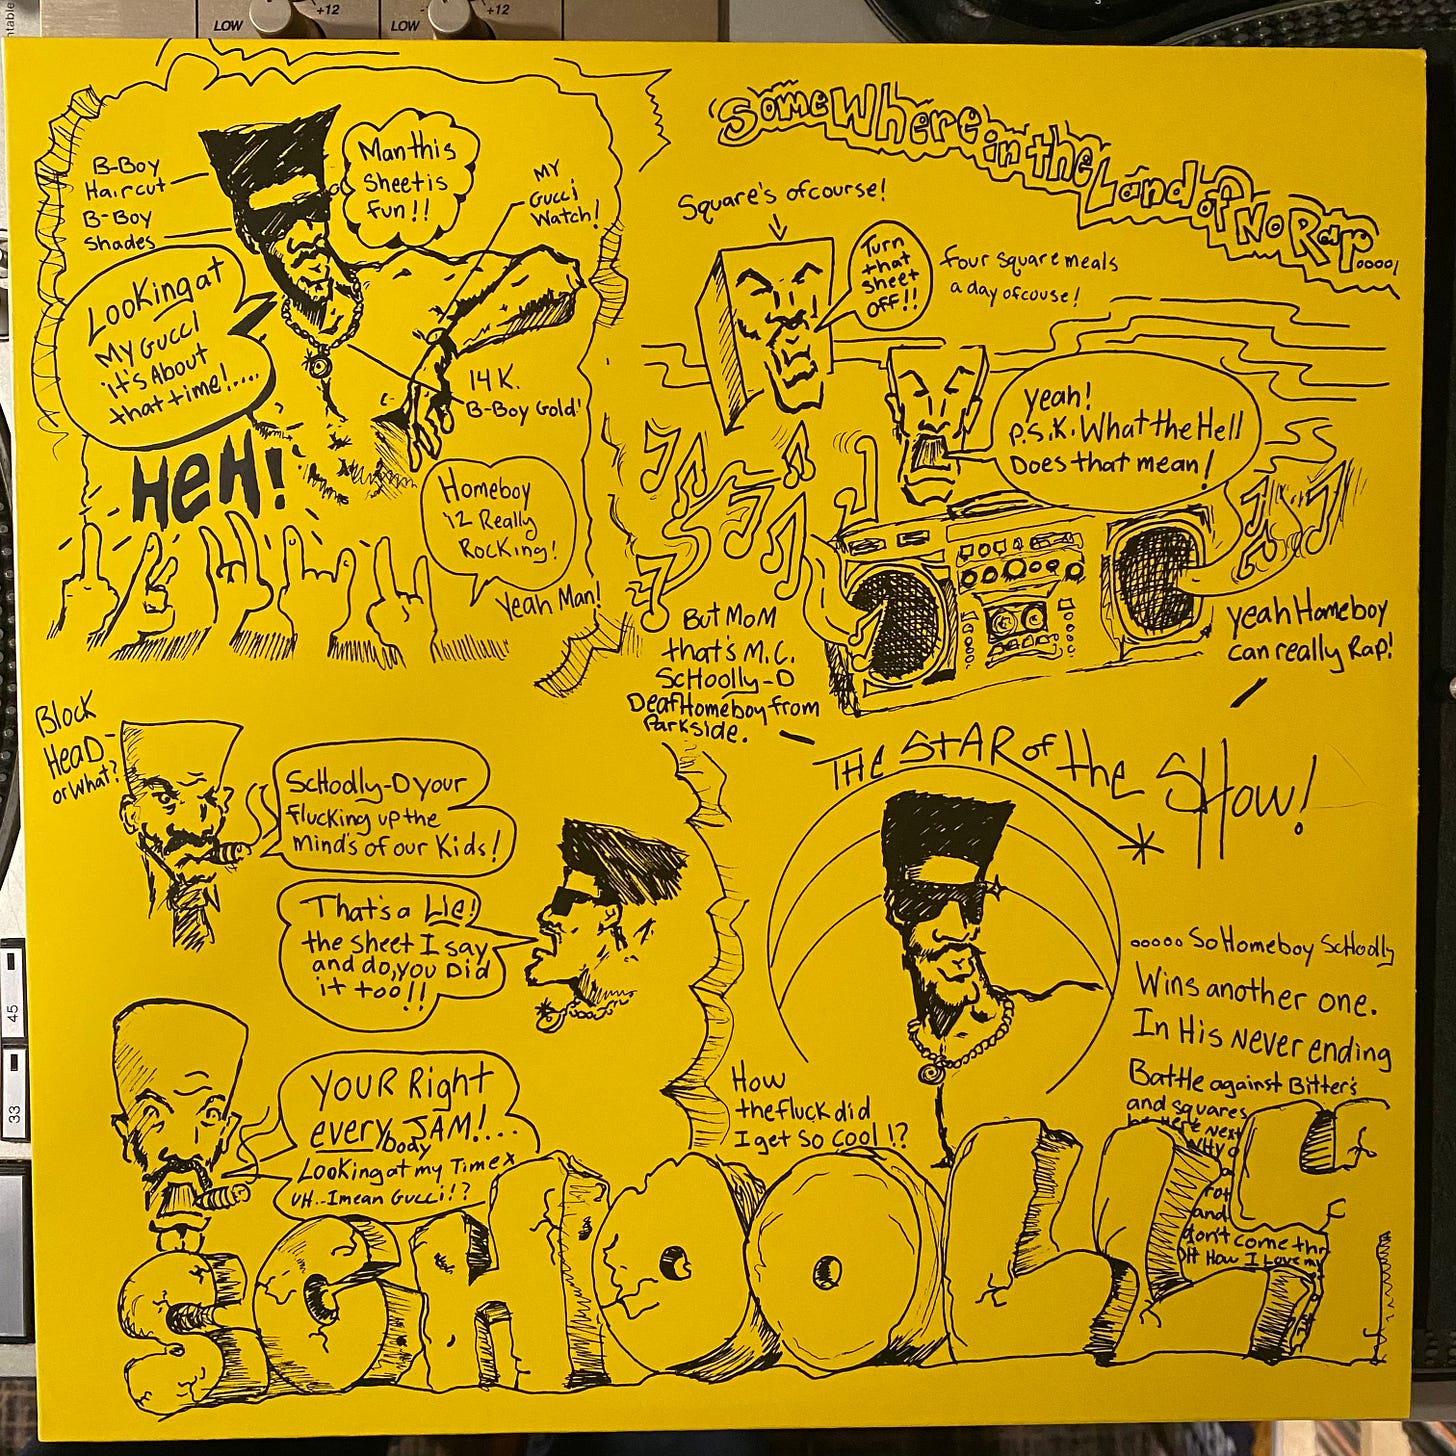 LOW
+12
LOW
+12
B-Boy
Haircut
B-Boy
Shades
Man this
Sheet is
fun!!
MY
Gucci
Watch!
Looking at
My Gucci
it's About
that time!....
14 K.
B-Boy Gold!
HeH!
Homeboy
iz Really
Rocking!
Yeah Man!
SomeWhere in the Land of No Rap.....
Square's ofcourse!
Turn
that
sheet
OFF!!
four square meals
a day ofcouse!
yeah!
P.S.K. What the Hell
Does that mean!
But MoM
that's M.C.
ScHoolly-D
Deaf Homeboy from
Parkside.
yeah Homeboy
can really Rap!
Block
HeaD-
or What?
ScHoolly-D your
flucking up the
minds of our Kids!
That's a Lie!
the sheet I say
and do, you Did
it too!!
YOUR Right
everybody JAM!....
Looking at my Timex
UH..I mean Gucci!?
THe StAR of the SHow!
..... So Homeboy ScHoolly
Wins another one.
In His Never ending
Battle against Bitter's
and squares
be Here Next
Why
and
don't come thr
OH How I Love my
How
the fluck did
I get so cool!?
SCHOOLLY
45
33